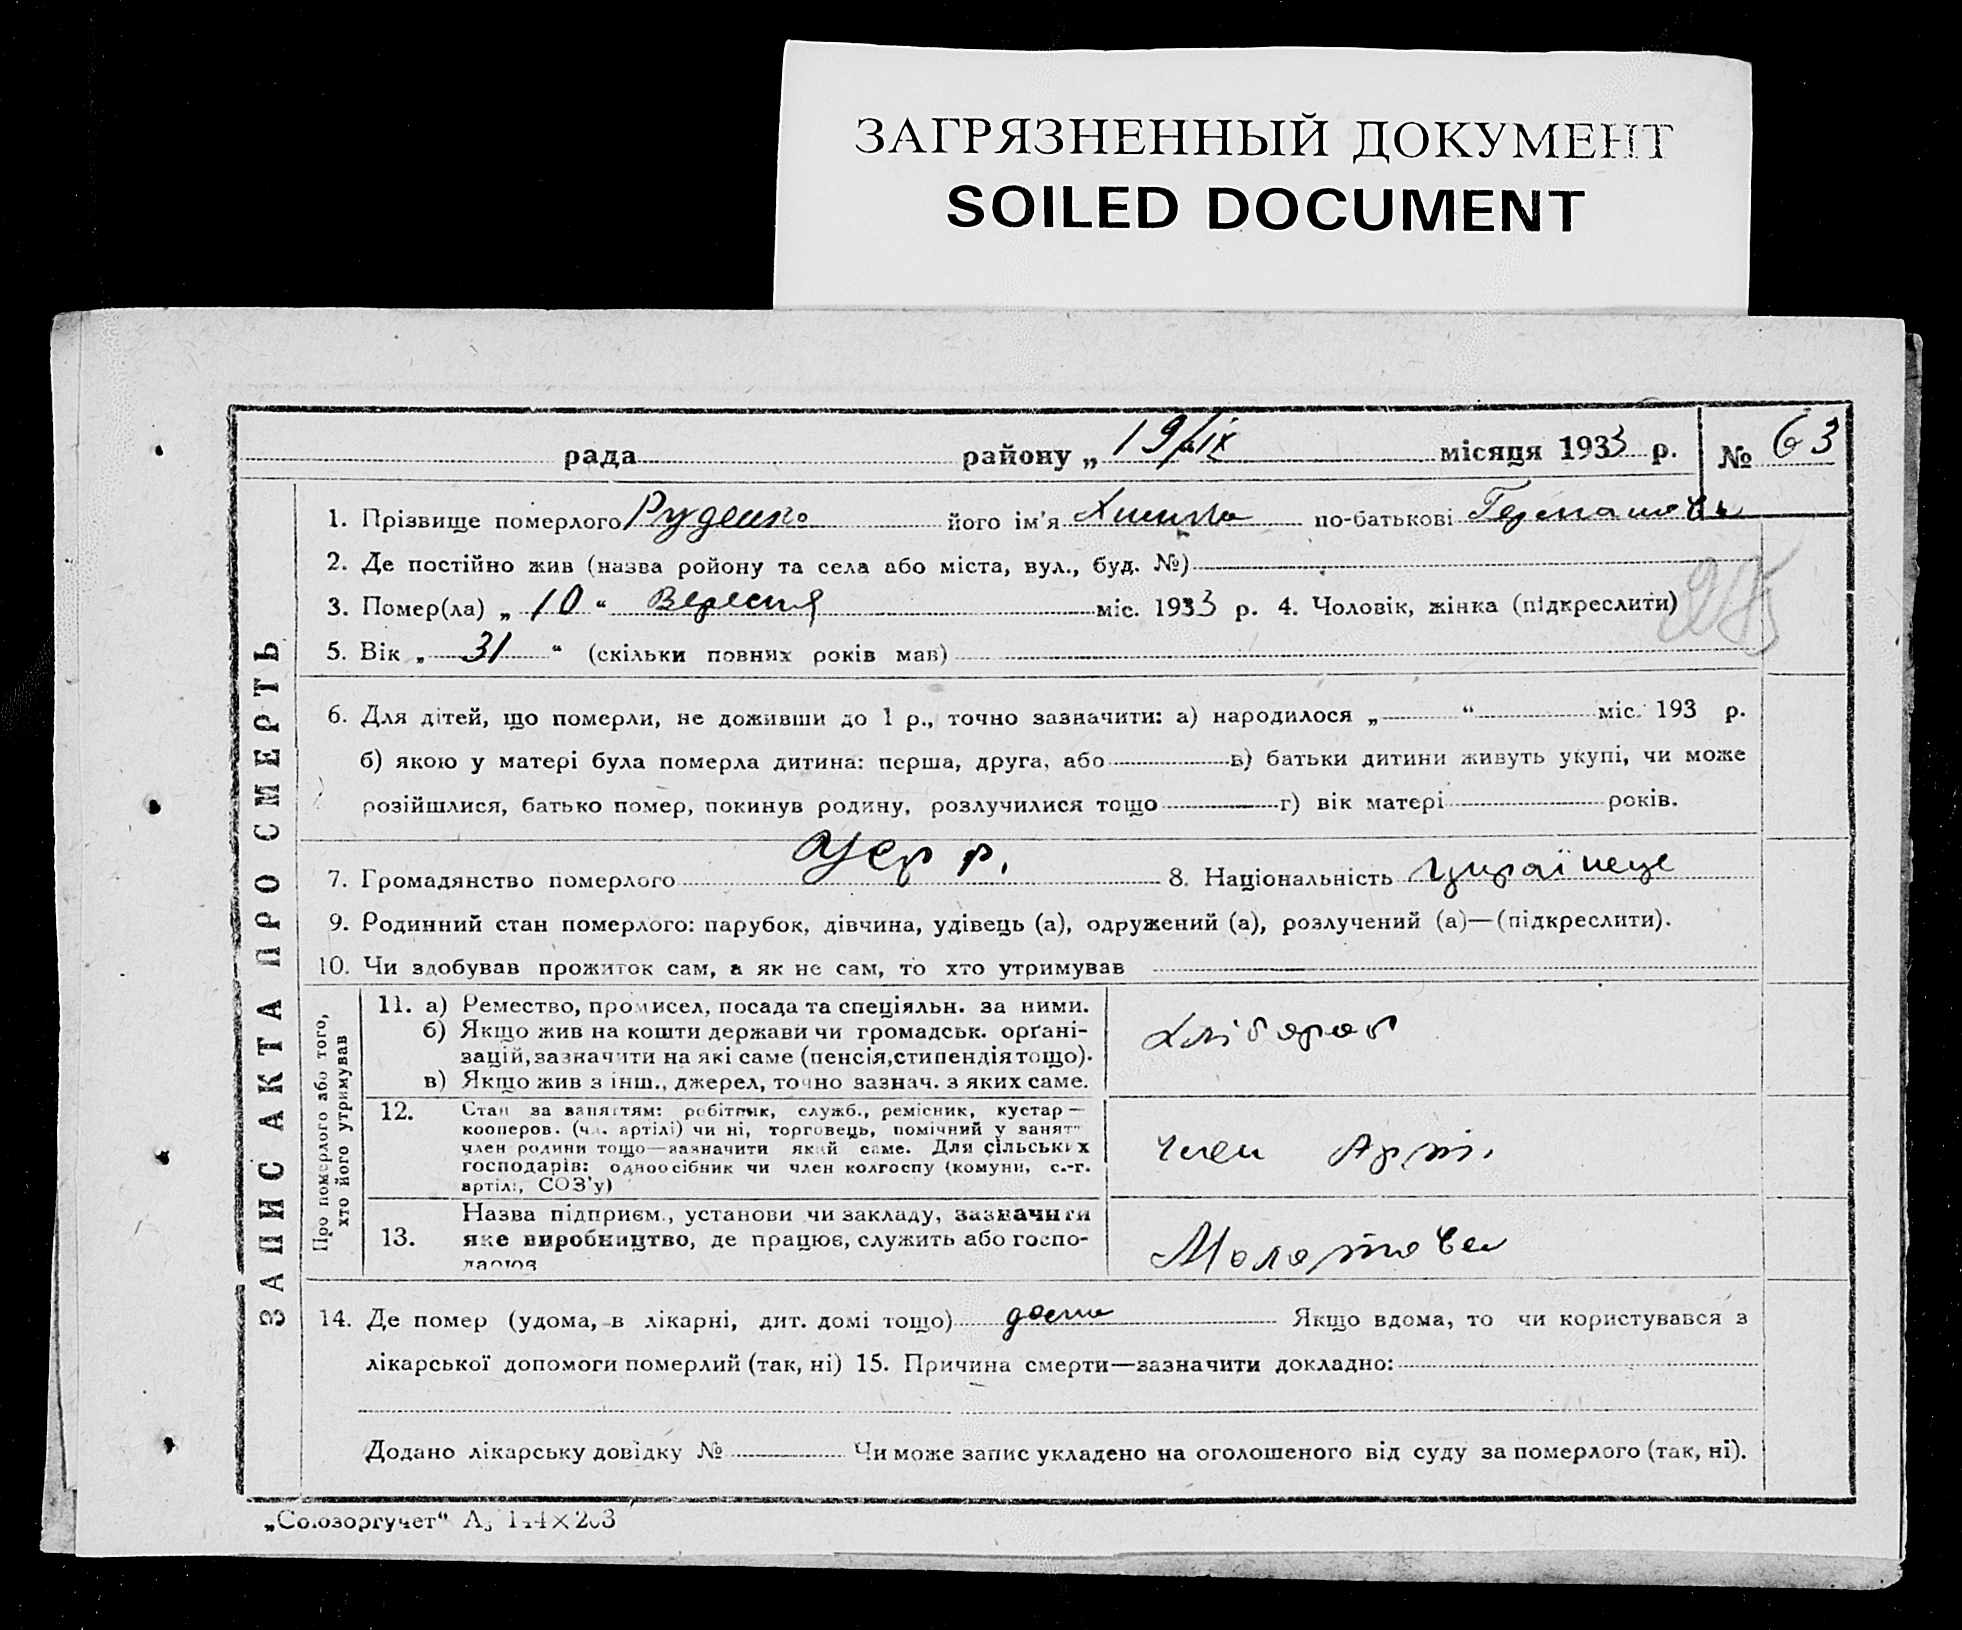 ЗАГРЯЗНЕННЫЙ ДОКУМЕНТ
SOILED DOCUMENT
рада району „ 19/IX місяця 1933 р. № 63
ЗАПИС АКТА ПРО СМЕРТЬ
1. Прізвище померлого Руденко його ім'я по-батькові
2. Де постійно жив (назва ройону та села або міста, вул., буд. №)
3. Помер(ла) „ 10 “ Вересня міс. 1933 р. 4. Чоловік, жінка (підкреслити)
5. Вік „ 31 “ (скільки повних років мав)
6. Для дітей, що померли, не доживши до 1 р., точно зазначити: а) народилося „ “ міс. 193 р.
б) якою у матері була померла дитина: перша, друга, або в) батьки дитини живуть укупі, чи може
розійшлися, батько помер, покинув родину, розлучилися тощо г) вік матері років.
7. Громадянство померлого усрр. 8. Національність українець
9. Родинний стан померлого: парубок, дівчина, удівець (а), одружений (а), розлучений (а)—(підкреслити).
10. Чи здобував прожиток сам, а як не сам, то хто утримував
Про померлого або того,
хто його утримував
11. а) Ремество, промисел, посада та спеціяльн. за ними.
б) Якщо жив на кошти держави чи громадськ. орґані-
зацій, зазначити на які саме (пенсія, стипендія тощо).
в) Якщо жив з інш., джерел, точно зазнач. з яких саме.
Хлібороб
12. Стан за заняттям: робітник, служб., ремісник, кустар —
кооперов. (чл. артілі) чи ні, торговець, помічний у занятт
член родини тощо—зазначити який саме. Для сільських
господарів: одноосібник чи член колгоспу (комуни, с.-г.
артілі, СОЗ'у)
член Арт.
13. Назва підприєм., установи чи закладу, зазначити
яке виробництво, де працює, служить або госпо-
дарює
Молотова
14. Де помер (удома, в лікарні, дит. домі тощо) дома Якщо вдома, то чи користувався з
лікарської допомоги померлий (так, ні) 15. Причина смерти—зазначити докладно:
Додано лікарську довідку № Чи може запис укладено на оголошеного від суду за померлого (так, ні).
„Союзоргучет“